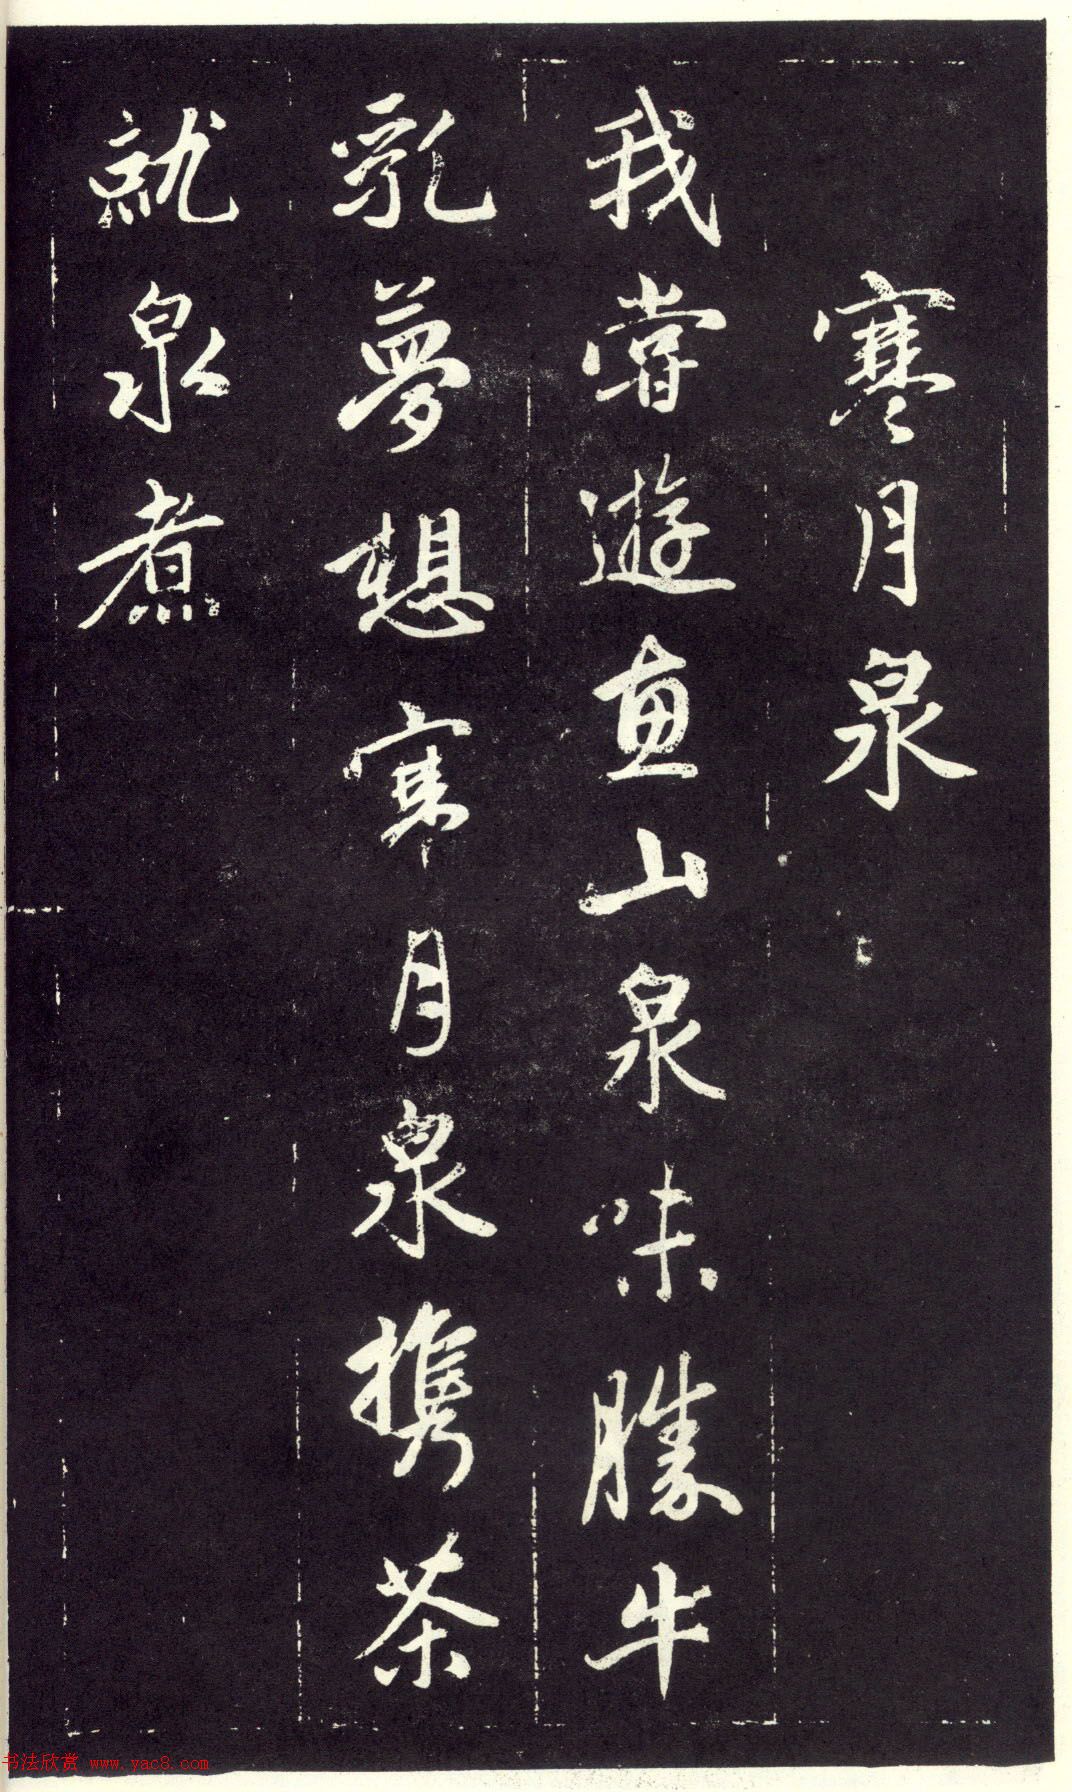 寒月泉
我嘗遊惠山泉味勝牛
乳夢想寒月泉攜茶
就泉煮
书法欣赏 www.yac8.com